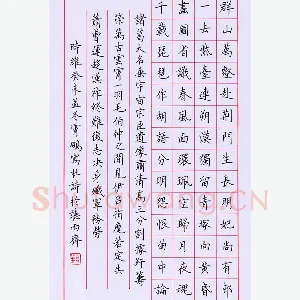 群山萬壑赴荊門生長明妃尚有邨
一去紫臺連朔漠獨留青塚向黃昏
畫圖省識春風面環珮空歸月夜魂
千載琵琶作胡語分明怨恨曲中論
諸葛大名垂宇宙宗臣遺像肅清高三分割據紆籌
策萬古雲霄一羽毛伯仲之間見伊呂指揮若定失
蕭曹運移漢祚終難復志決身殲軍務勞
時維癸未孟冬鵬寫杜詩於南齋